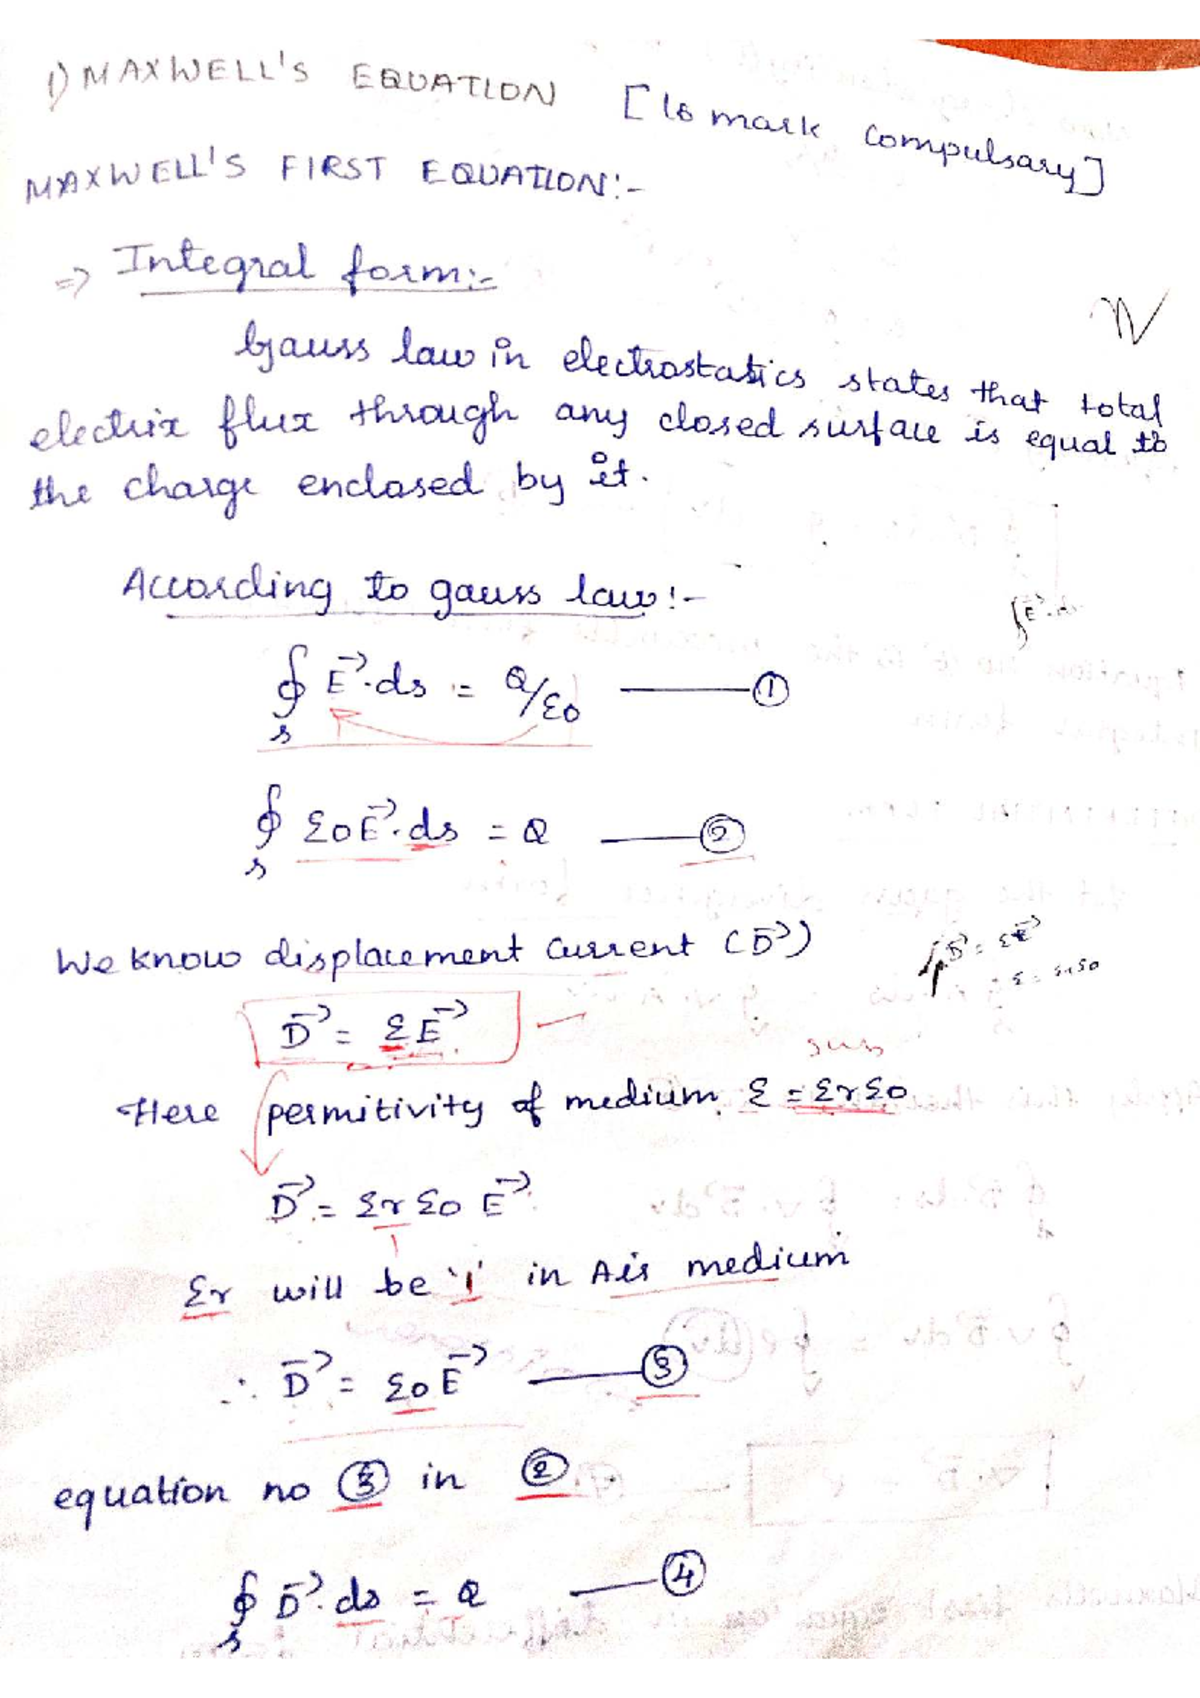 1) MAXWELL'S EQUATION [16 mark compulsary]
MAXWELL'S FIRST EQUATION:-
=> Integral form:-
Gauss law in electrostatics states that total
electrix flux through any closed surface is equal to
the charge enclosed by it.
According to gauss law:-
∮s E⃗.ds = Q/ε0 ——— ①
∮s ε0E⃗.ds = Q ——— ②
We know displacement current (D⃗)
D⃗ = εE⃗
Here permitivity of medium ε = εrε0
D⃗ = εr ε0 E⃗
εr will be '1' in Air medium
∴ D⃗ = ε0 E⃗ ——— ③
equation no ③ in ②
∮s D⃗.ds = Q ——— ④